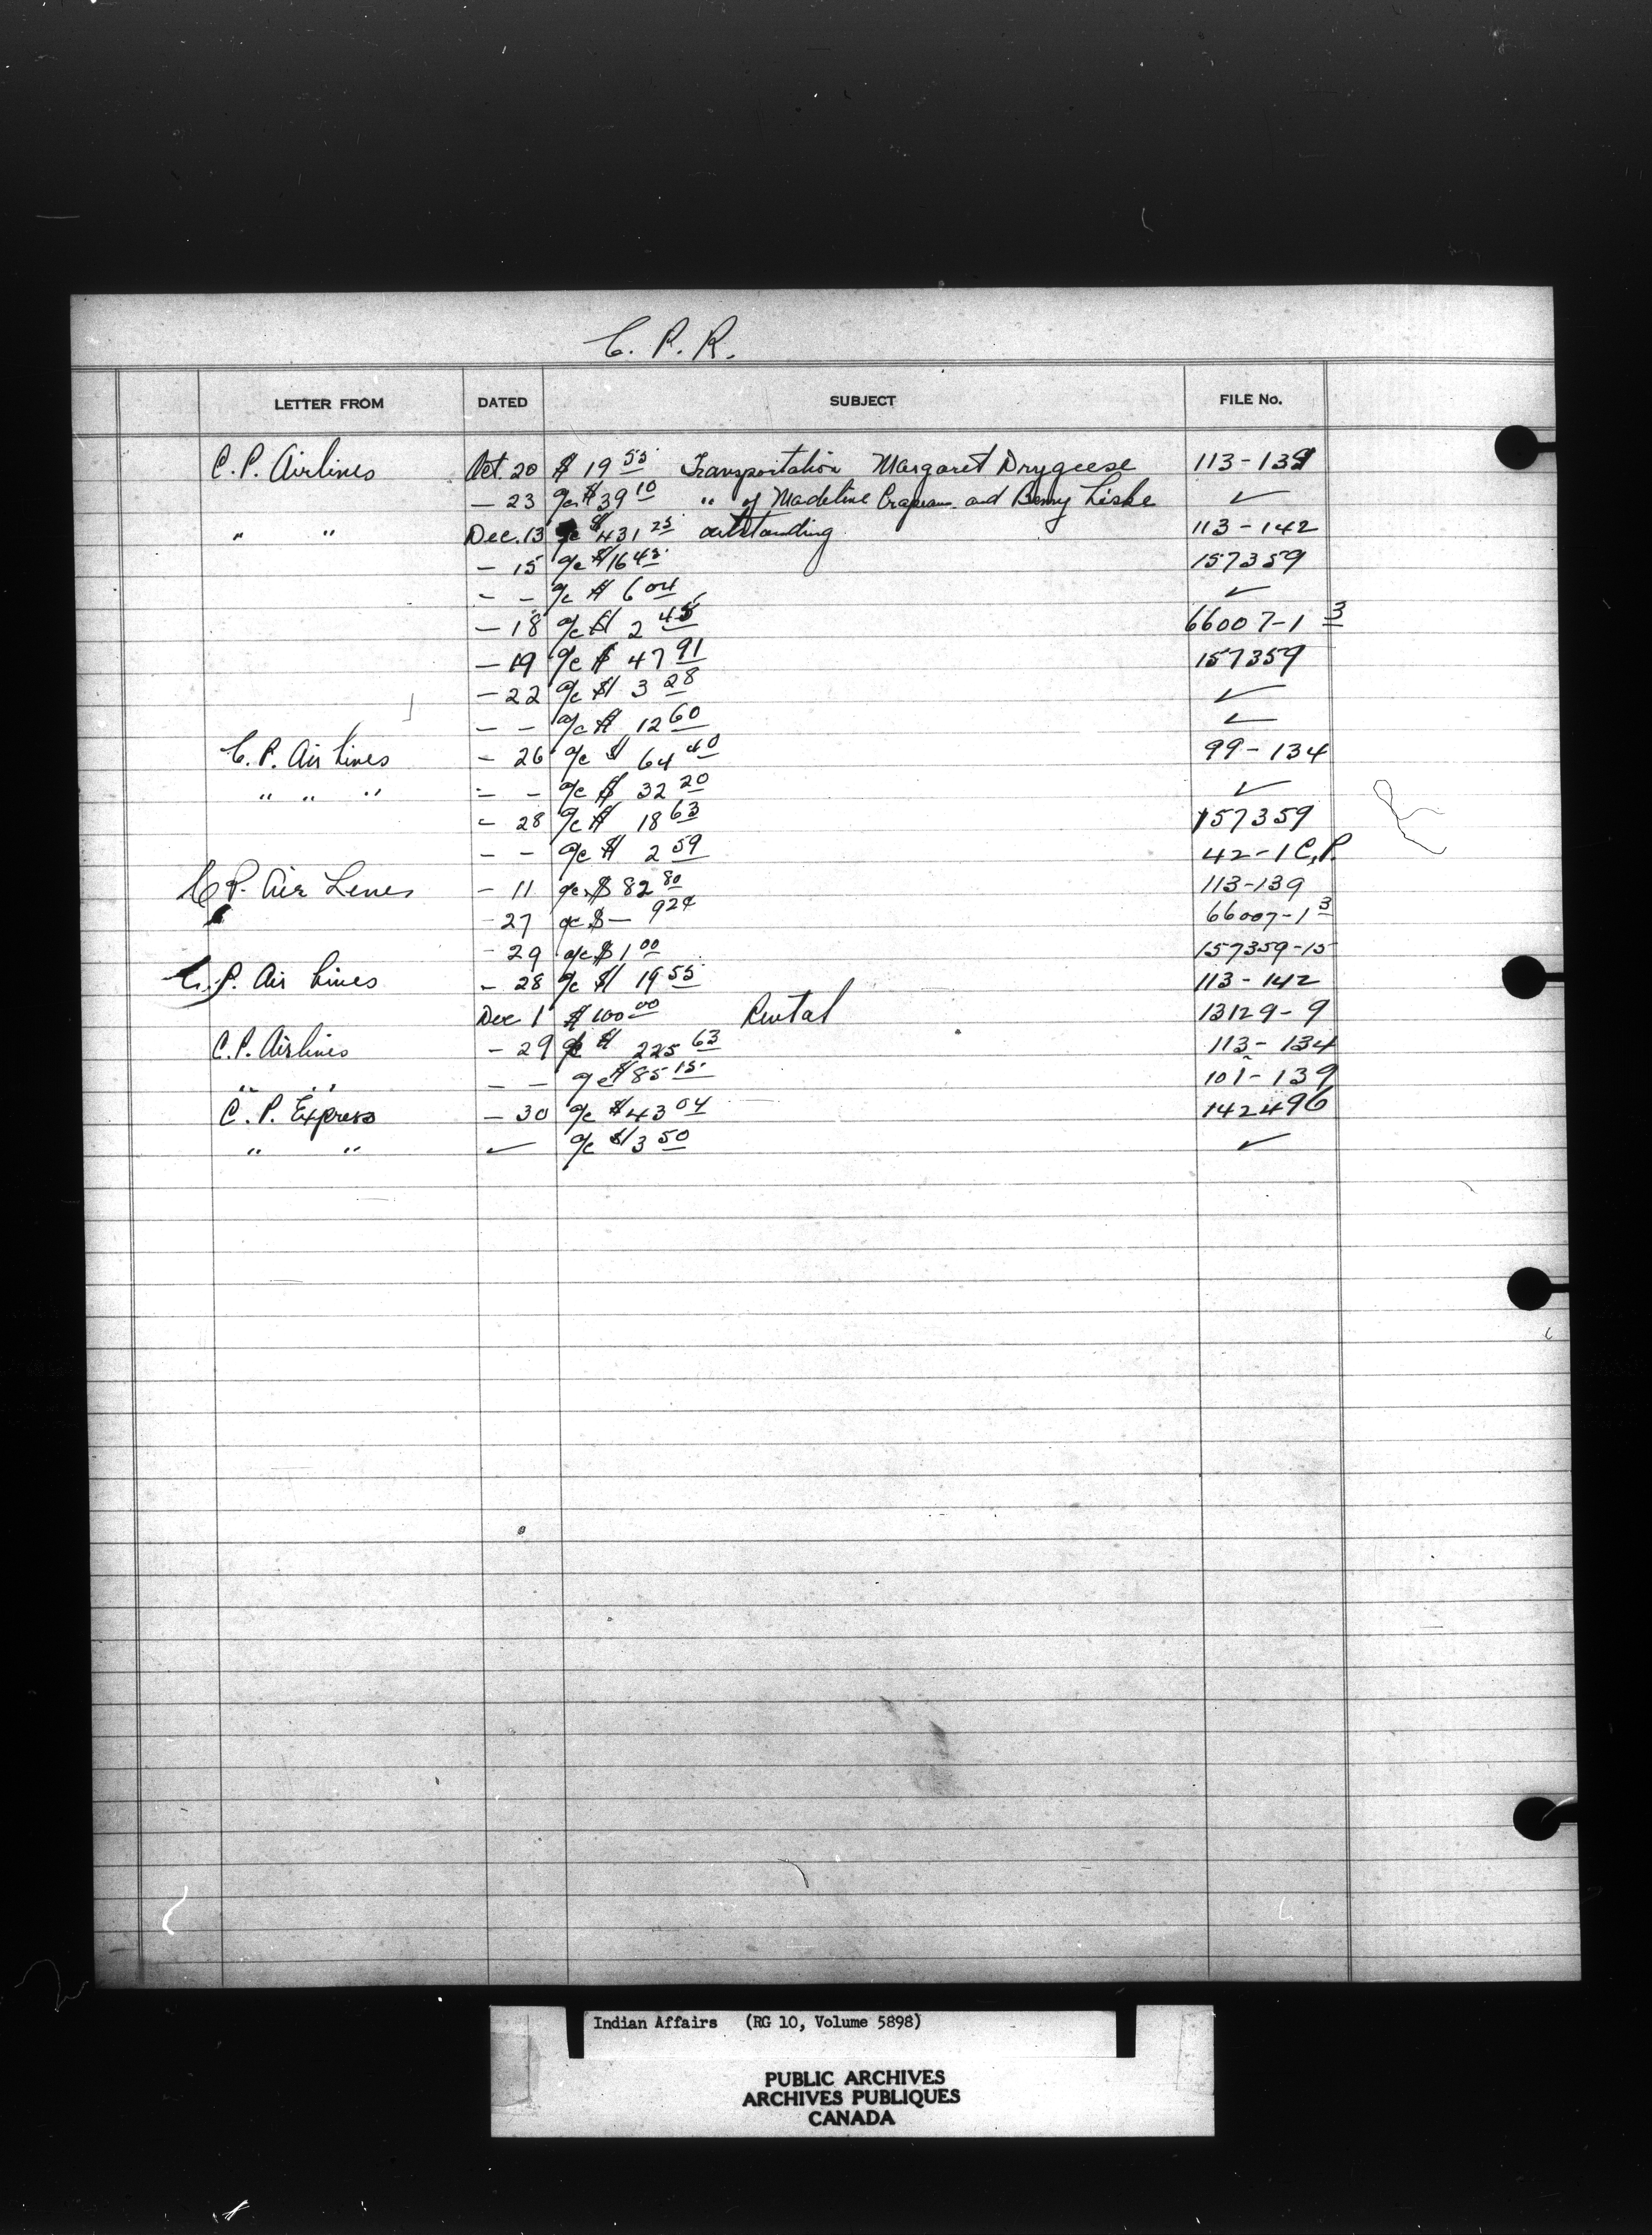 C. P. R.
LETTER FROM DATED SUBJECT FILE No.
C. P. Airlines Oct. 20 $ 19 55 Transportation Margaret Drygeese 113-139
— 23 a/c $ 39 10 " of Madeline and Benny Liske ✓
" " Dec. 13 a/c $ 431 25 outstanding 113-142
— 15 a/c $ 16 45 157359
— — a/c $ 6 04 ✓
— 18 a/c $ 2 45 66007-1 3
— 19 a/c $ 47 91 157359
— 22 a/c $ 3 28 ✓
— — a/c $ 12 60 ✓
C. P. Air Lines — 26 a/c $ 64 40 99-134
" " " — — a/c $ 32 20 ✓
— 28 a/c $ 18 63 157359
— — a/c $ 2 59 42-1 C.P.
C P. Air Lines — 11 a/c $ 82 80 113-139
— 27 a/c $ — 92¢ 66007-1 3
— 29 a/c $ 1 00 157359-15
C. P. Air Lines — 28 a/c $ 19 55 113-142
Dec 1 $ 100 00 Rental 13129-9
C. P. Airlines — 29 a/c $ 225 63 113-134
" " — — a/c $ 85 15 101-139
C. P. Express — 30 a/c $ 43 04 142496
" " ✓ a/c $ 3 50 ✓
Indian Affairs (RG 10, Volume 5898)
PUBLIC ARCHIVES
ARCHIVES PUBLIQUES
CANADA